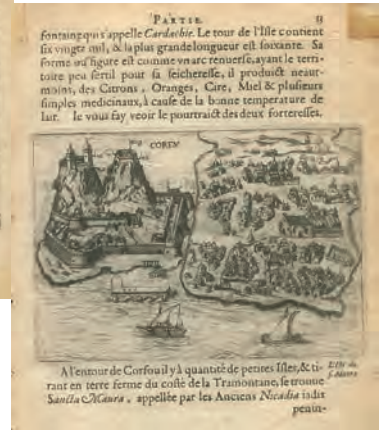 PARTIE. 13
fontaine qui s'appelle Cardachie. Le tour de l'Isle contient
six vingtz mil, & la plus grande longueur est soixante. Sa
forme ou figure est comme vn arc renuersé, ayant le terri-
toire peu fertil pour sa seicheresse, il produict neaut-
moins, des Citrons, Oranges, Cire, Miel & plusieurs
simples medicinaux, à cause de la bonne temperature de
lair. Ie vous fay veoir le pourtraict des deux forteresses.
CORFV
A l'entour de Corfou il y à quantité de petites Isles, & ti-
rant en terre ferme du costé de la Tramontane, se trouue
Sancta Maura, appellée par les Anciens Nicadia iadis
penin-